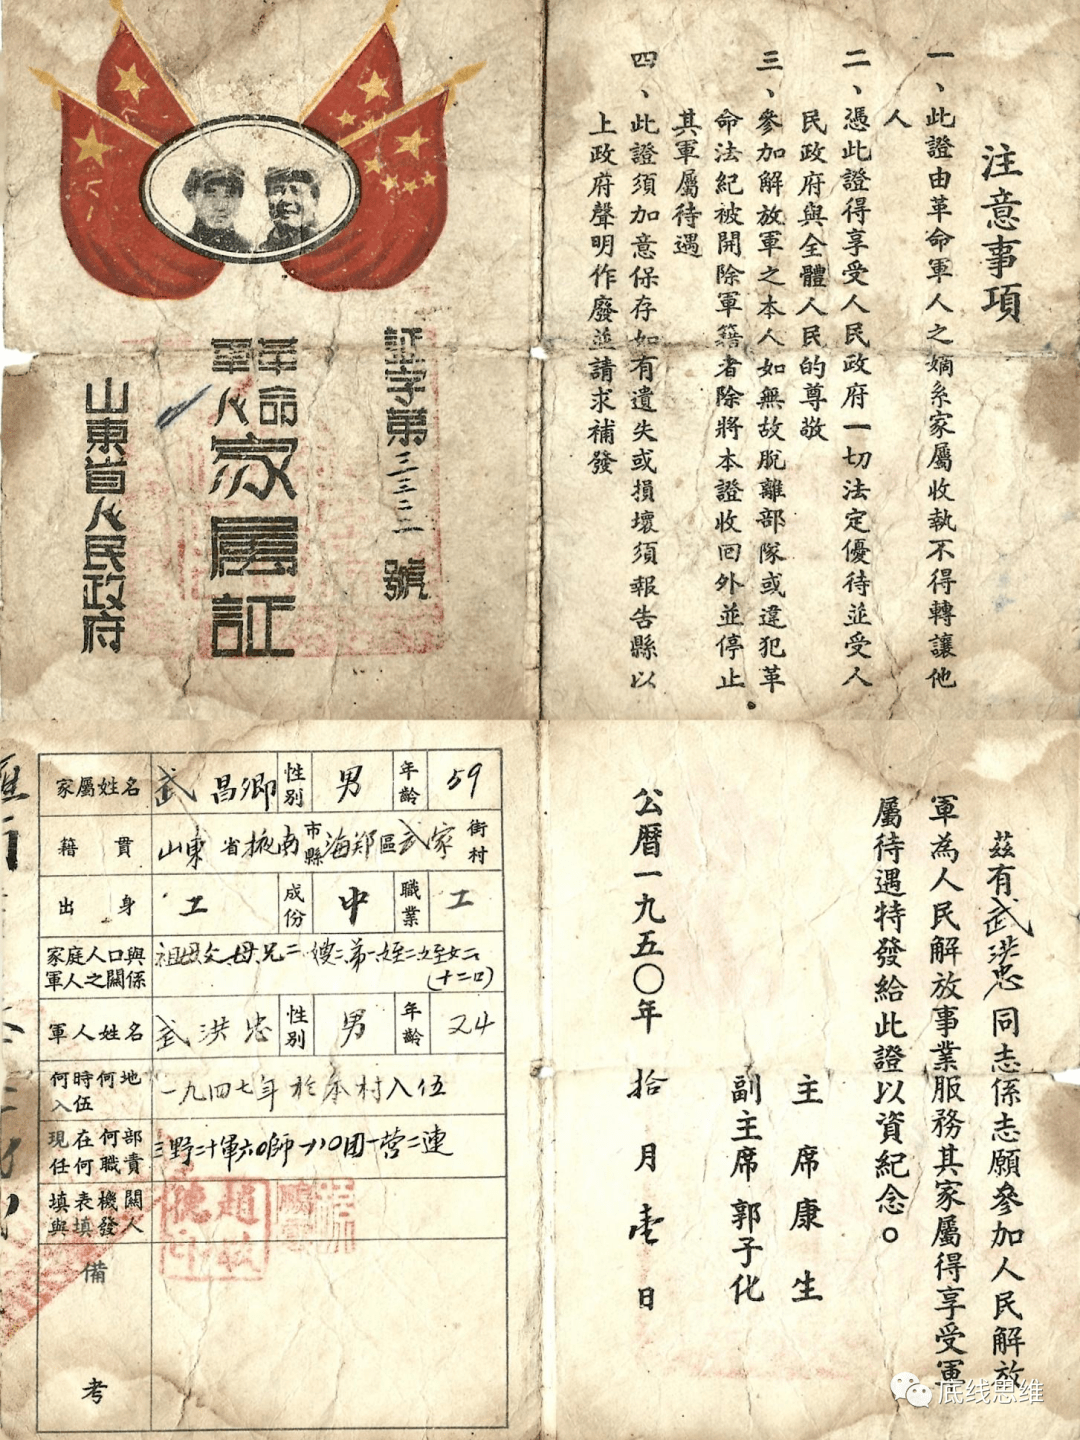 証字第三三二二號
革命
軍人
家屬証
山東省人民政府
注意事項
一、此證由革命軍人之嫡系家屬收執不得轉讓他
人
二、憑此證得享受人民政府一切法定優待並受人
民政府與全體人民的尊敬
三、參加解放軍之本人如無故脫離部隊或違犯革
命法紀被開除軍籍者除將本證收回外並停止
其軍屬待遇
四、此證須加意保存如有遺失或損壞須報告縣以
上政府聲明作廢並請求補發
家屬姓名 武昌卿 性別 男 年齡 59
籍貫 山東省掖南市縣海郑區武家街村
出身 工 成份 中 職業 工
家庭人口與軍人之關係 祖母父母兄二嫂二弟一姪二姪女二(十二口)
軍人姓名 武洪忠 性別 男 年齡 24
何時何地入伍 一九四七年於本村入伍
現在何部任何職責 三野二十軍六〇師一八〇团一营二連
填表機關與填發人
備考
茲有武洪忠同志係志願參加人民解放
軍為人民解放事業服務其家屬得享受軍
屬待遇特發給此證以資紀念。
主席康生
副主席郭子化
公曆一九五〇年拾月壹日
底线思维